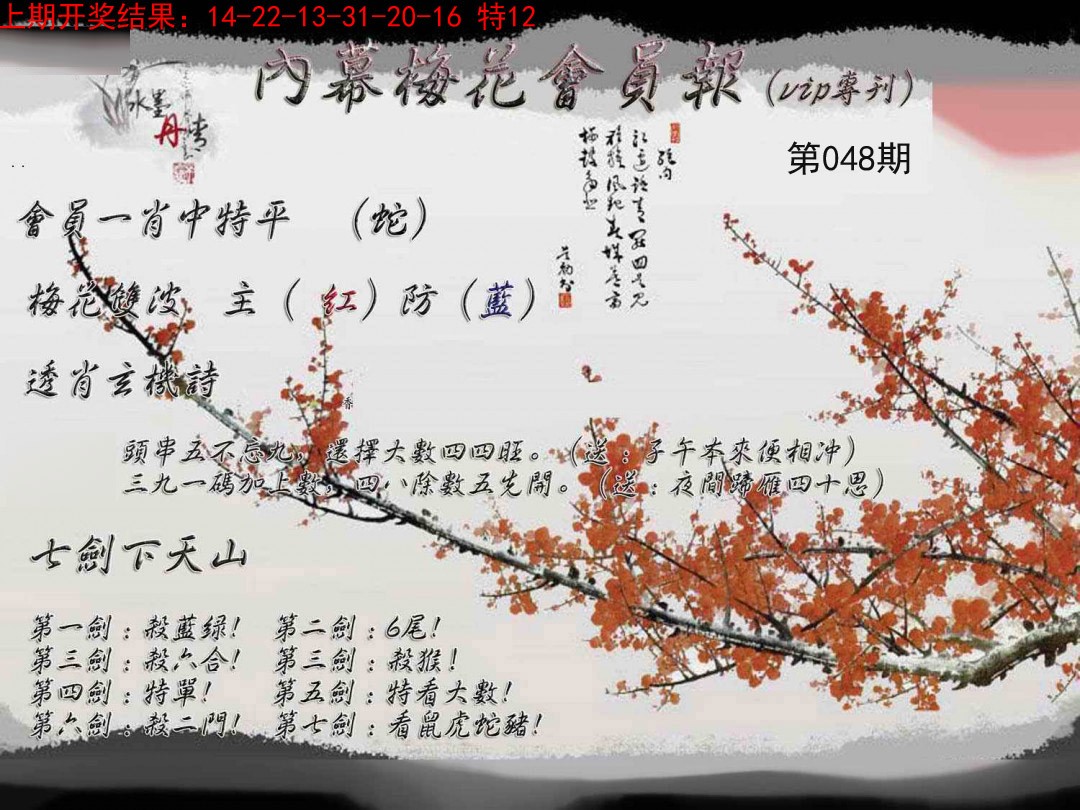 上期开奖结果：14-22-13-31-20-16 特12
內幕梅花會員報（vip專刊）
水墨丹青
第048期
會員一肖中特平 （蛇）
梅花雙波 主（紅）防（藍）
透肖玄機詩
香
頭串五不忘九，還擇大數四四旺。（送：子午本來便相冲）
三九一碼加上數，四八除數五先開。（送：夜間蹄雁四十思）
七劍下天山
第一劍：殺藍绿！ 第二劍：6尾！
第三劍：殺六合！ 第三劍：殺猴！
第四劍：特單！ 第五劍：特看大數！
第六劍：殺二門！ 第七劍：看鼠虎蛇豬！